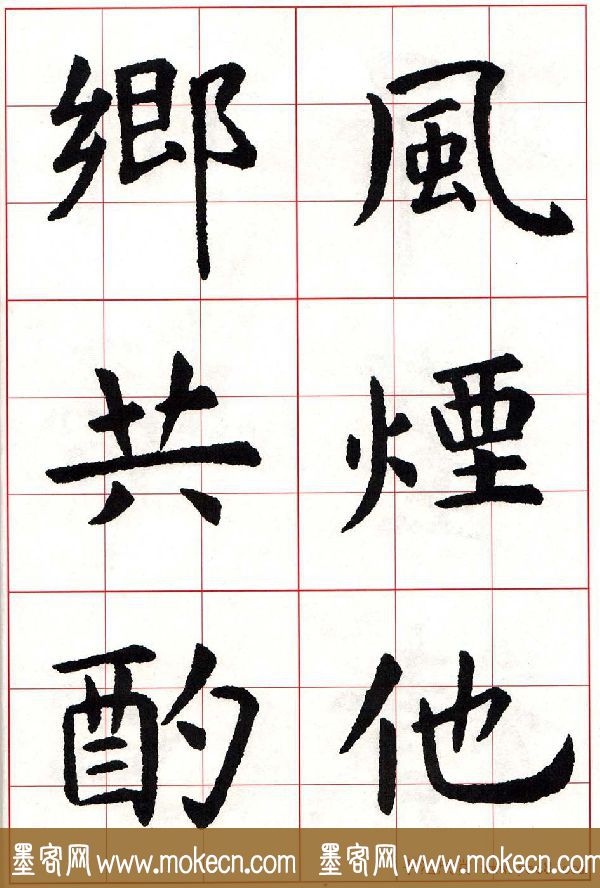 風煙他
鄉共酌
墨客网 www.mokecn.com 墨客网 www.mokecn.com